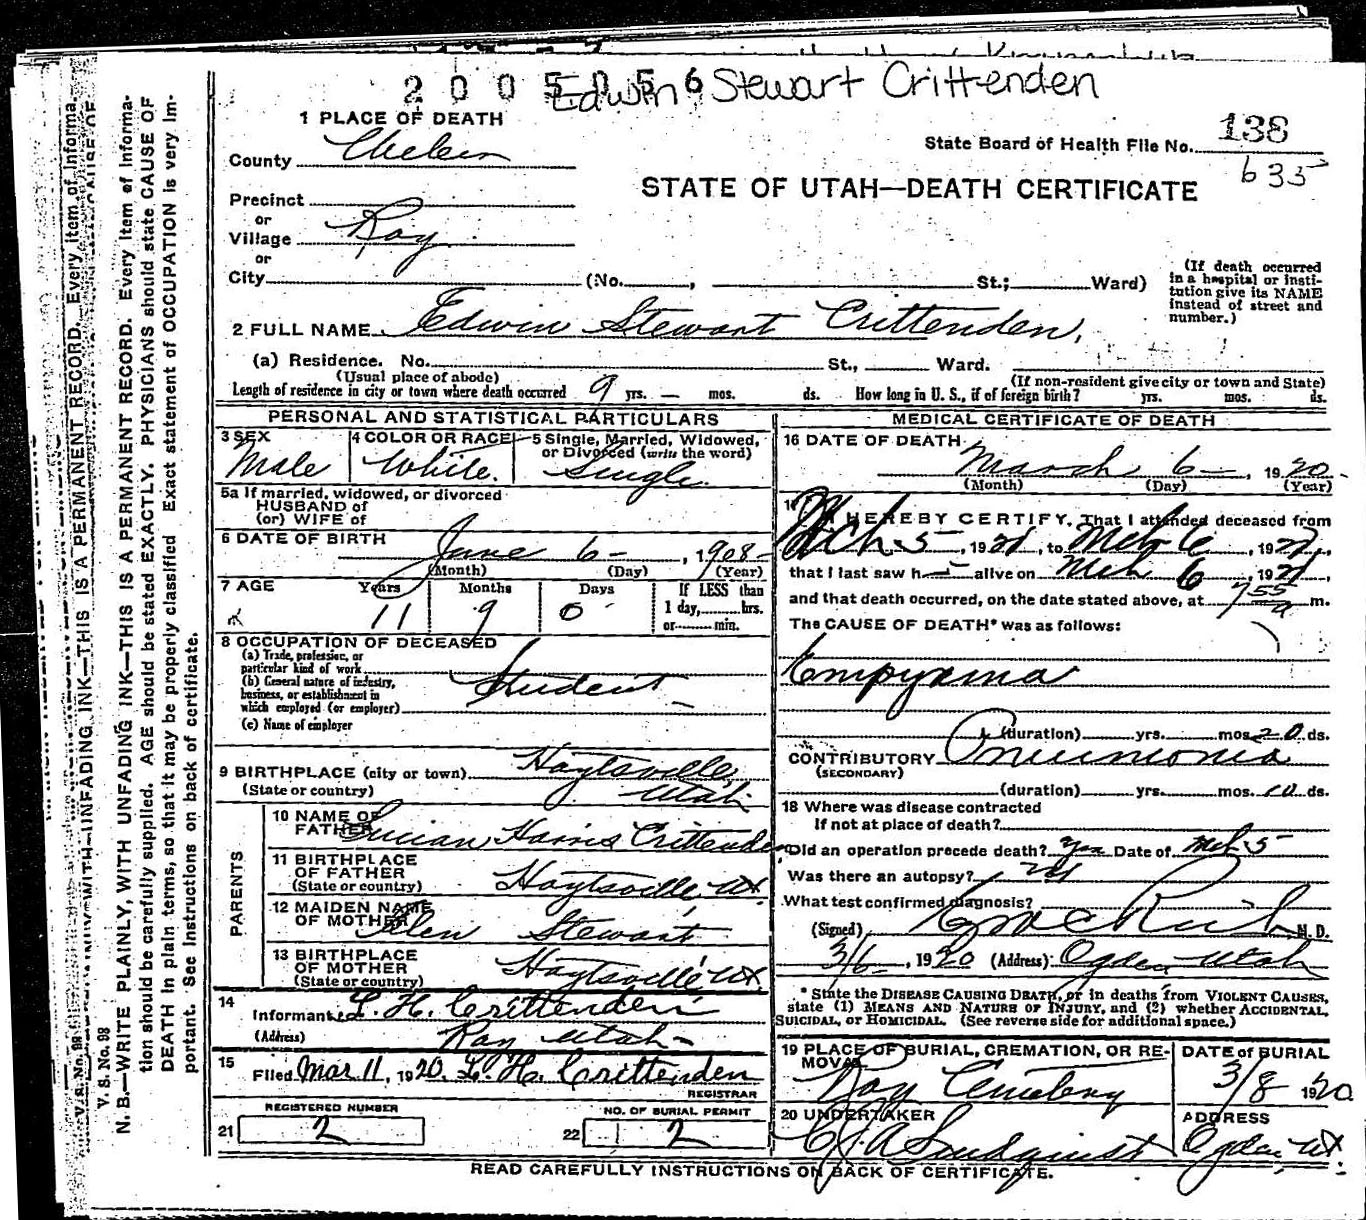 2005056 Edwin Stewart Crittenden
1 PLACE OF DEATH
State Board of Health File No. 138
635
County
STATE OF UTAH—DEATH CERTIFICATE
Precinct
or
Village Roy
or
City (No. , St.; Ward)
(If death occurred in a hospital or institution give its NAME instead of street and number.)
2 FULL NAME Edwin Stewart Crittenden,
(a) Residence. No. St., Ward.
(Usual place of abode) (If non-resident give city or town and State)
Length of residence in city or town where death occurred 9 yrs. — mos. ds. How long in U. S., if of foreign birth? yrs. mos. ds.
PERSONAL AND STATISTICAL PARTICULARS
3 SEX Male
4 COLOR OR RACE White.
5 Single, Married, Widowed, or Divorced (write the word) Single
5a If married, widowed, or divorced
HUSBAND of
(or) WIFE of
6 DATE OF BIRTH June 6- , 1908-
(Month) (Day) (Year)
7 AGE Years Months Days If LESS than
11 9 0 1 day,......hrs.
or......min.
8 OCCUPATION OF DECEASED
(a) Trade, profession, or particular kind of work
(b) General nature of industry, business, or establishment in which employed (or employer)
Student
(c) Name of employer
9 BIRTHPLACE (city or town) Hoytsville,
(State or country) Utah
PARENTS
10 NAME OF FATHER Lucian Harris Crittenden
11 BIRTHPLACE OF FATHER (State or country) Hoytsville Ut.
12 MAIDEN NAME OF MOTHER Stewart
13 BIRTHPLACE OF MOTHER (State or country) Hoytsville Ut.
14 Informant L. H. Crittenden
(Address) Roy Utah-
15 Filed Mar 11, 1920. L. H. Crittenden
REGISTRAR
REGISTERED NUMBER NO. OF BURIAL PERMIT
21 2 22 2
MEDICAL CERTIFICATE OF DEATH
16 DATE OF DEATH
March 6- , 1920-
(Month) (Day) (Year)
17 I HEREBY CERTIFY, That I attended deceased from
Mch 5 , 192 , to Mch 6 , 192 ,
that I last saw h alive on Mch 6 , 192 ,
and that death occurred, on the date stated above, at 7 55 a m.
The CAUSE OF DEATH* was as follows:
Empyema
(duration) yrs. mos. 20 ds.
CONTRIBUTORY Pneumonia
(SECONDARY)
(duration) yrs. mos. 10 ds.
18 Where was disease contracted
If not at place of death?
Did an operation precede death? yes Date of Mch 5
Was there an autopsy? no
What test confirmed diagnosis?
(Signed) M. D.
3/6 , 1920 (Address) Ogden Utah
* State the DISEASE CAUSING DEATH, or in deaths from VIOLENT CAUSES,
state (1) MEANS AND NATURE OF INJURY, and (2) whether ACCIDENTAL,
SUICIDAL, or HOMICIDAL. (See reverse side for additional space.)
19 PLACE OF BURIAL, CREMATION, OR REMOVAL DATE of BURIAL
Roy Cemetery 3/8 1920
20 UNDERTAKER ADDRESS
Ogden, Ut.
READ CAREFULLY INSTRUCTIONS ON BACK OF CERTIFICATE.
V. S. No. 98
N. B.—WRITE PLAINLY, WITH UNFADING INK—THIS IS A PERMANENT RECORD. Every item of informa-
tion should be carefully supplied. AGE should be stated EXACTLY. PHYSICIANS should state CAUSE OF
DEATH in plain terms, so that it may be properly classified. Exact statement of OCCUPATION is very im-
portant. See instructions on back of certificate.